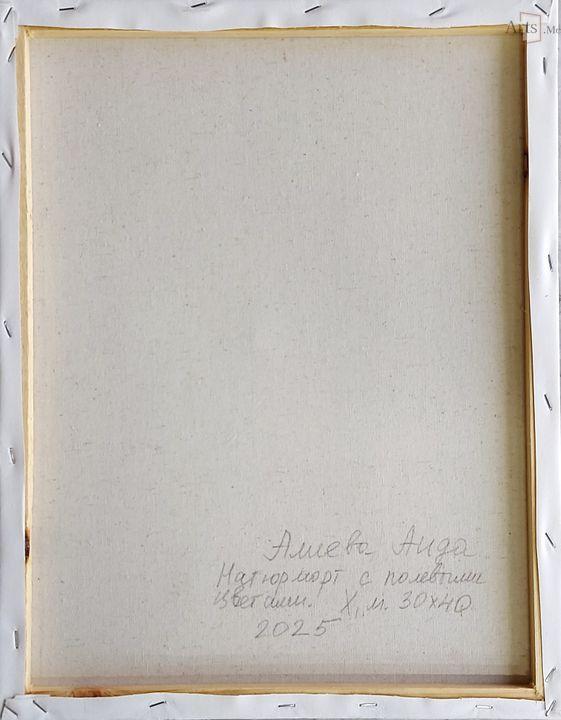 Arts.Me
Алиева Аида
Натюрморт с полевыми
цветами. Х,м. 30х40
2025